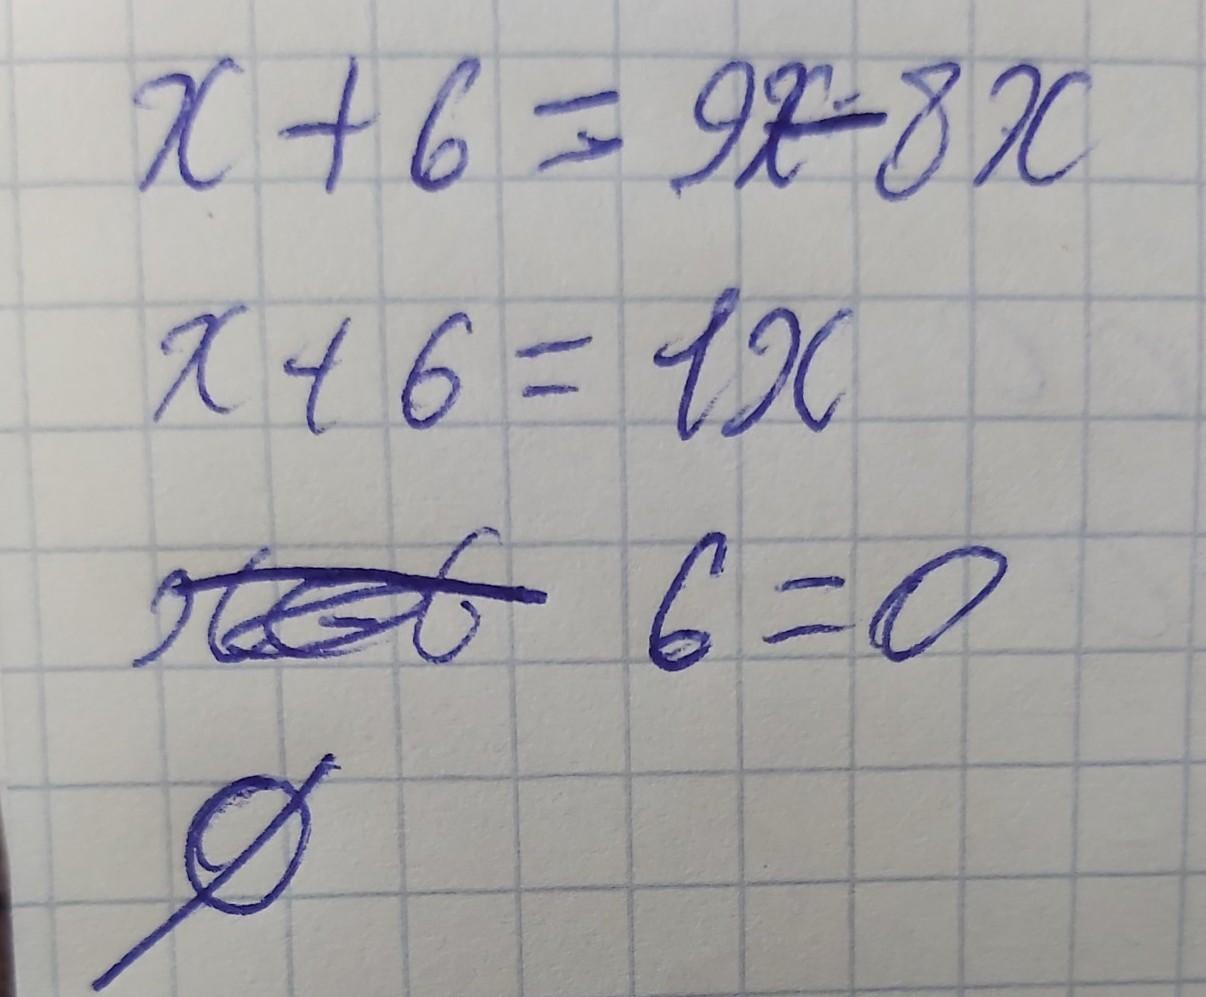 x + 6 = 9x - 8x
x + 6 = 1x
6 = 0
∅